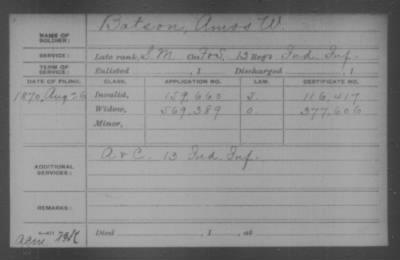 NAME OF SOLDIER: Batson, Amos W.
SERVICE: Late rank, S.M. Co. F&S, 13 Reg't Ind. Inf.
TERM OF SERVICE: Enlisted , 1 Discharged , 1
DATE OF FILING. CLASS. APPLICATION NO. LAW. CERTIFICATE NO.
1870, Aug 26 Invalid, 159.660 116.417
Widow, 569.389 377.606
Minor,
ADDITIONAL SERVICES: A & C. 13 Ind. Inf.
REMARKS:
Died , 1 , at